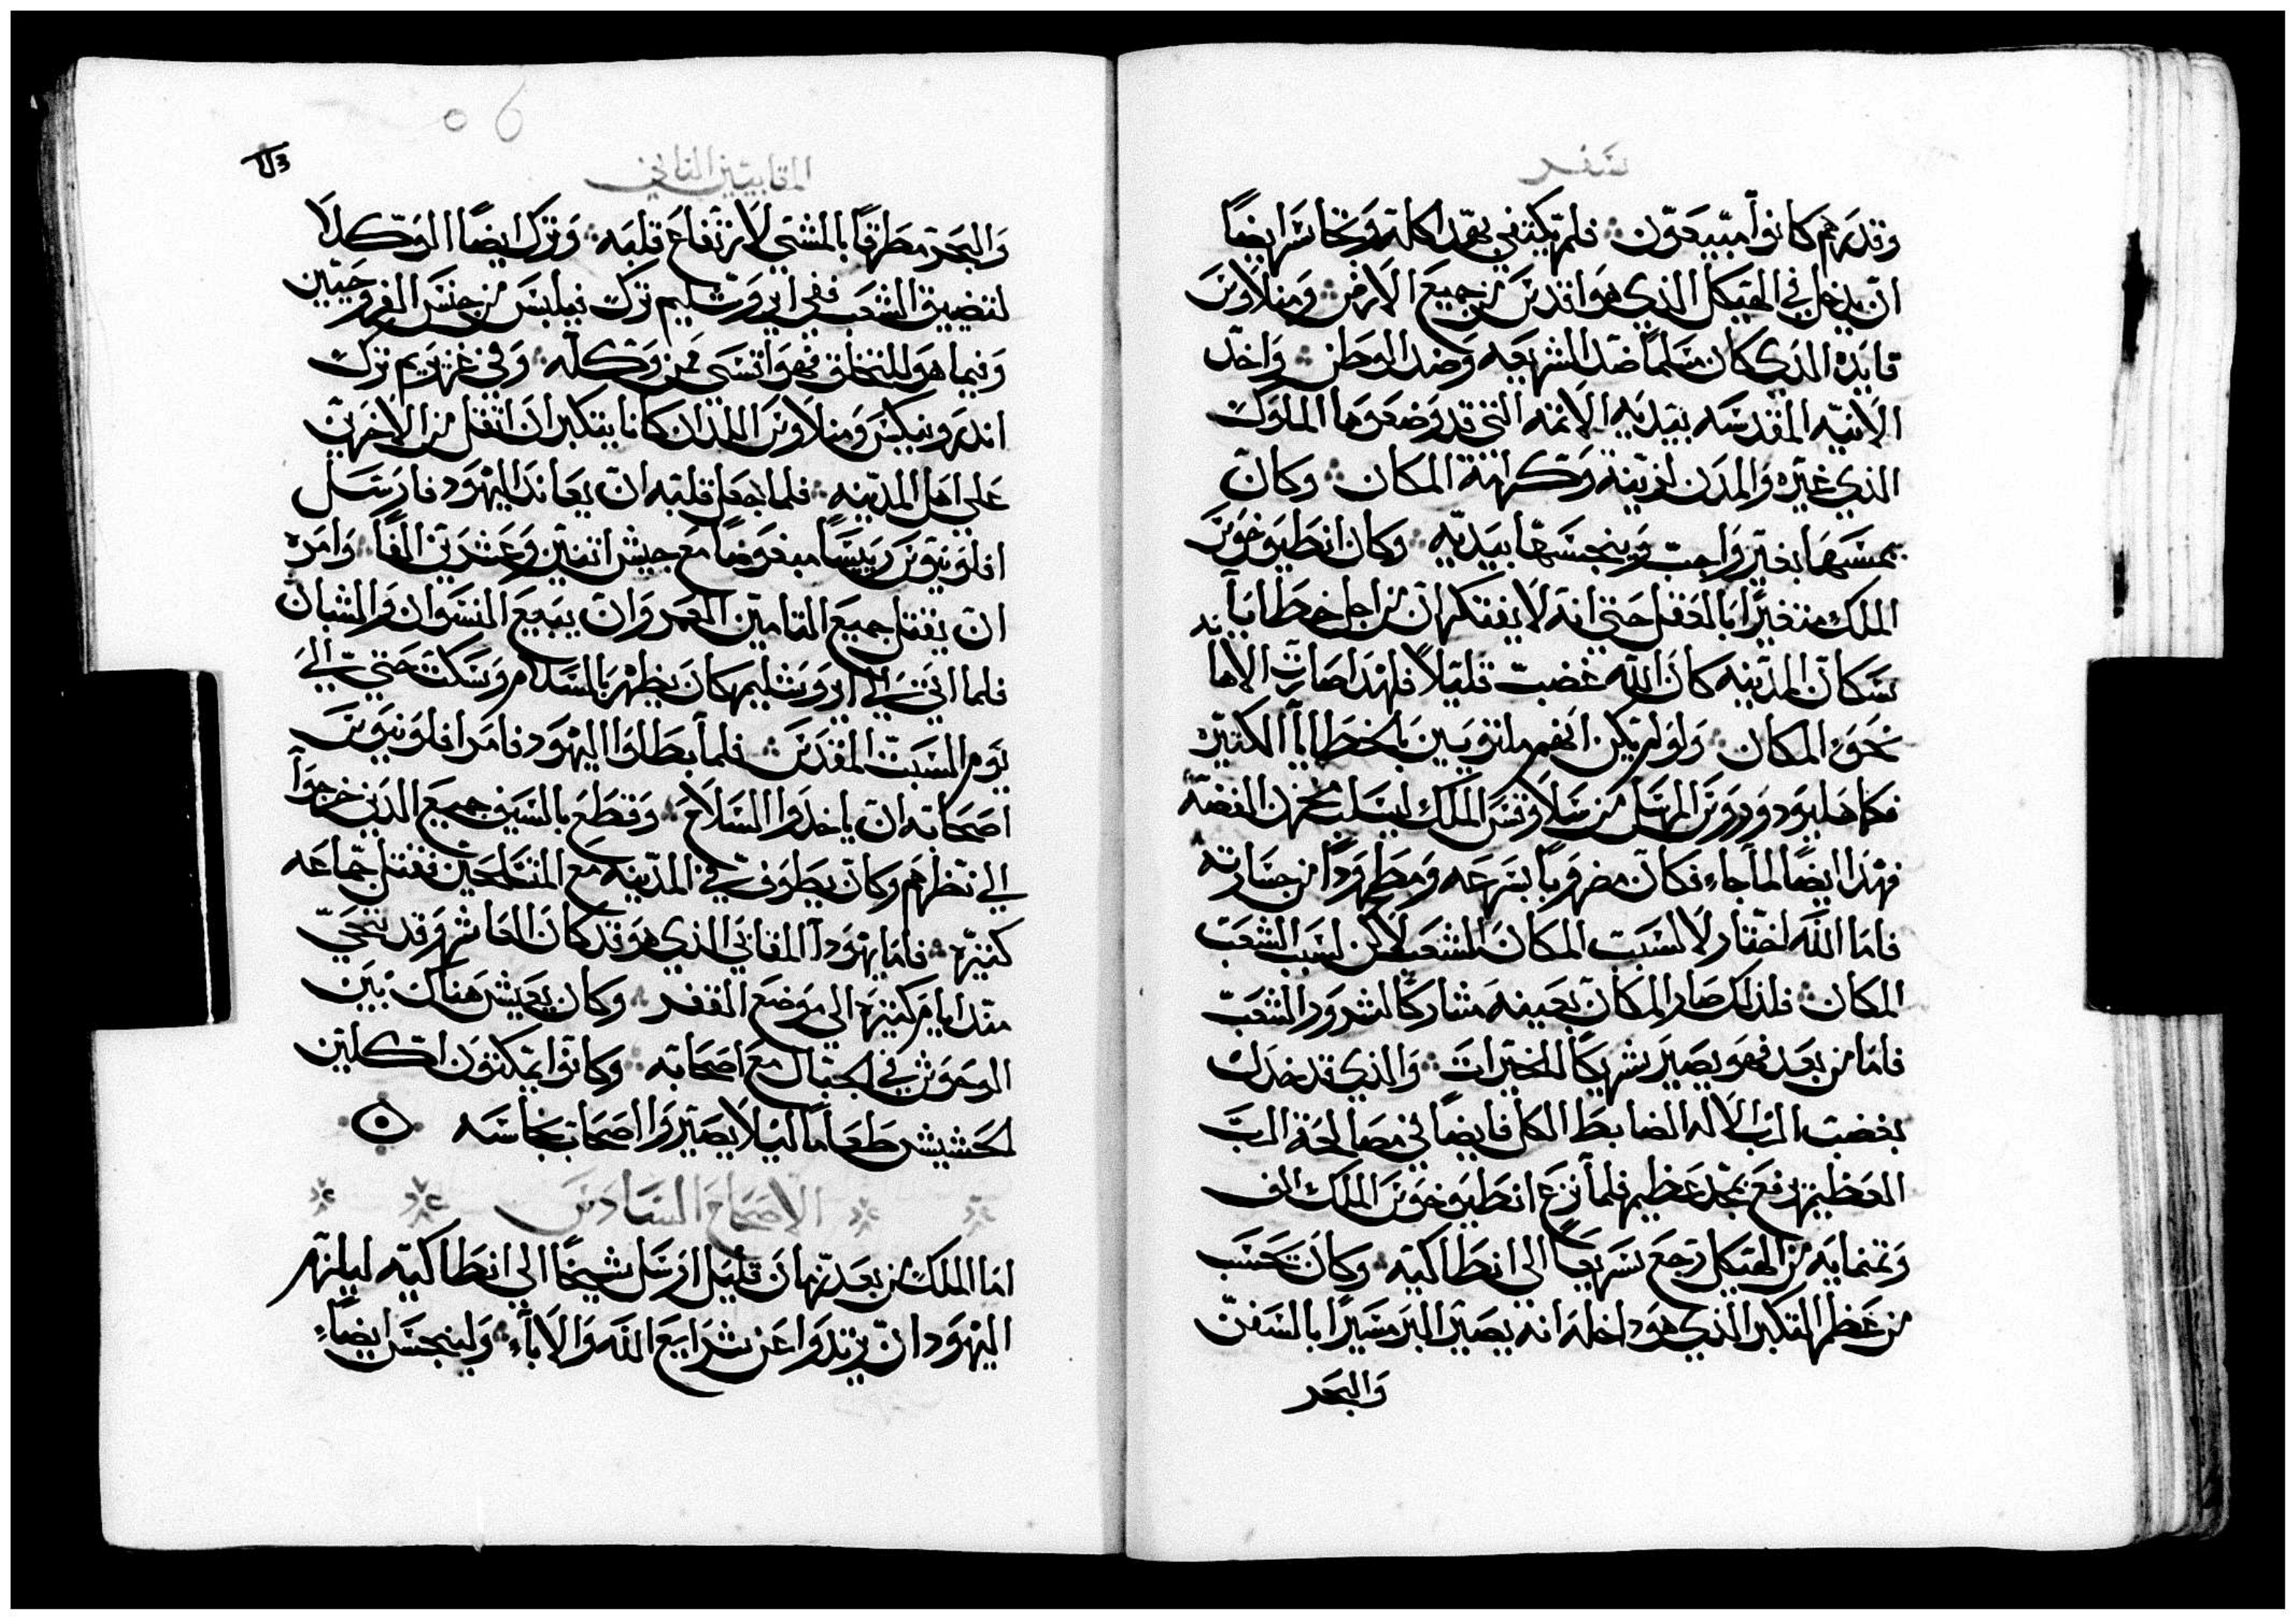 سفر
وقدرهم كانوا مبيعون فلم يكتفي بهذا كله وتجاسر ايضاً
ان يدخل في الهيكل الذي هو اقدس من جميع الارض ومنلاوس
قايده الذي كان مسلماً ضد الشريعه وضد الوطن واخذ
الانيه المقدسه بيديه الاثمه التي قد وضعوها الملوك
الذي غيره والمدن لزينة وكرامة المكان وكان
يمسها بغير واجب وينجسها بيديه وكان انطيوخوس
الملك متغيراً بالعقل حتي انه لا يفتكر ان من اجل خطايا
سكان المدينه كان الله غضب قليلاً فلهذا صارت الاهانه
نحو المكان ولو لم يكن انهم ملتويين بالخطايا الكتيره
فكما هليودوروس المرسل من سلاوقس الملك ليسلب مخزن الفضه
فهذا ايضاً لما جاء فكان مضروباً بسرعه ومطروداً من جسارته
فاما الله اختار لا لسبب المكان الشعب لاكن لسبب الشعب
المكان فلذلك صار المكان بعينه مشاركاً لشرور الشعب
فاما من بعد فهو يصير شريكاً للخيرات والذي قد خدل
بغضب الرب الاله الضابط الكل فايضاً في مصالحة الرب
العظيم يرفع بمجد عظيم فلما نزع انطيوخوس الملك الف
وتمنمايه من الهيكل رجع سريعاً الى انطاكيه وكان تحسب
من عظم التكبر الذي هو داخله انه يصير البر مسيراً بالسفن
والبحر
المقابيين التاني
والبحر مطرقاً بالمشي لارتفاع قلبه وترك ايضاً الموكلا
لتضييق الشعب ففي ايروشليم ترك فيلبس من جنس الفروجيين
وفيما هو للتخلق فهو اقسى ممن وكله وفي غرزيم ترك
اندرونيكس ومنلاوس اللذان كانا يتكبران اتقل من الاخرين
على اهل المدينه فلما جعل قلبه ان يعاند اليهود فارسل
افلونيوس رييساً مبغوضاً مع جيش اتنين وعشرين الفاً وامره
ان يقتل جميع التامين العمر وان يبيع النسوان والشبان
فلما اتي الي ايروشليم كان يظهر بالسلام وسكت حتي الي
يوم السبت المقدس فلما بطلوا اليهود فامر افلونيوس
اصحابه ان ياخدوا السلاح وقطع بالسيف جميع الدين خرجوا
الي نظرهم وكان يطوف في المدينه مع المتسلحين فقتل جماعه
كتيره فاما يهودا المقابي الذي هو قد كان العاشر وقد تنحي
منذ ايام كتيره الي موضع القفر وكان يعيش هناك بين
الوحوش في الجبال مع اصحابه وكانوا يمكتون اكلين
الحشيش طعاماً ليلا يصيروا اصحاب نجاسه
الاصحاح السادس
اما الملك من بعد زمان قليل ارسل شيخاً الي انطاكيه ليلزم
اليهود ان يرتدوا عن شرايع الله والاباء ولينجس ايضاً